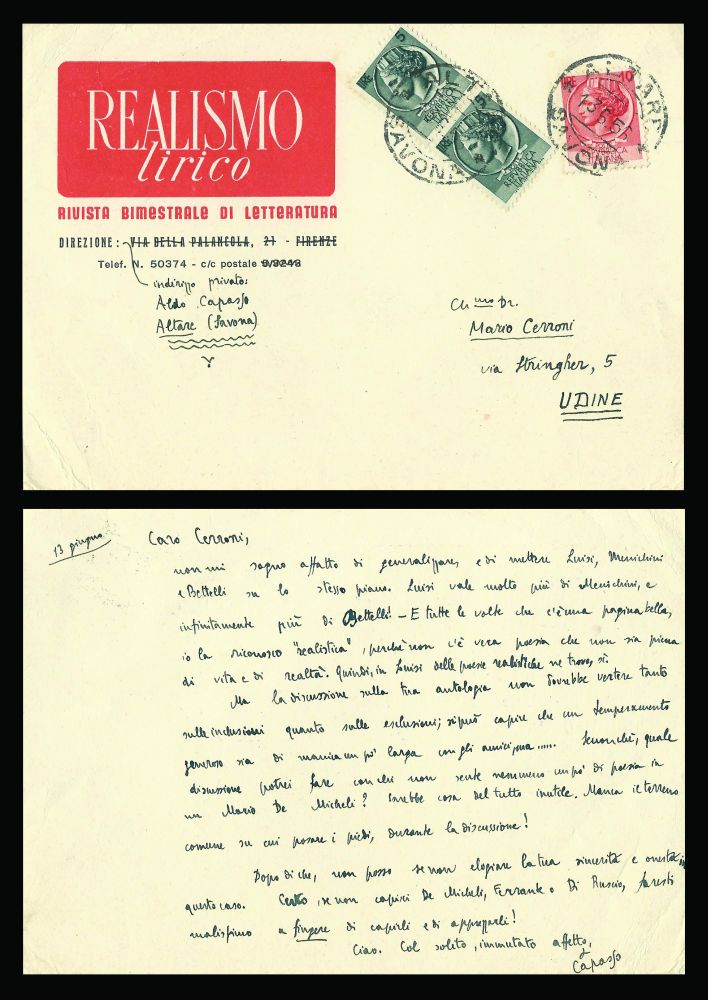 REALISMO
lirico
RIVISTA BIMESTRALE DI LETTERATURA
DIREZIONE: VIA DELLA PALANCOLA, 21 - FIRENZE
Telef. N. 50374 - c/c postale
indirizzo privato:
Aldo Capasso
Altare (Savona)
5
LIRE 10
ALTARE
SAVONA
Ch.mo Dr.
Mario Cerroni
via Stringher, 5
UDINE
13 giugno
Caro Cerroni,
non mi sogno affatto di generalizzare, e di mettere Luisi, Menichini
e Bettelli su lo stesso piano. Luisi vale molto più di Menichini, e
infinitamente più di Bettelli! - E tutte le volte che c'è una pagina bella,
io la riconosco "realistica", perchè non c'è vera poesia che non sia piena
di vita e di realtà. Quindi, in Luisi delle poesie realistiche ne trovo, sì.
Ma la discussione sulla tua antologia non dovrebbe vertere tanto
sulle inclusioni quanto sulle esclusioni; si può capire che un temperamento
generoso sia di manica un po' larga con gli amici, ma..... Senonchè, quale
discussione potrei fare con chi non sente nemmeno un po' di poesia in
un Mario De Micheli? Sarebbe cosa del tutto inutile. Manca il terreno
comune su cui posare i piedi, durante la discussione!
Dopo di che, non posso se non elogiare la tua sincerità e onestà in
questo caso. Certo, se non capisci De Micheli, Ferrante o Di Ruscio, faresti
malissimo a fingere di capirli e di apprezzarli!
Ciao. Col solito, immutato affetto,
Capasso